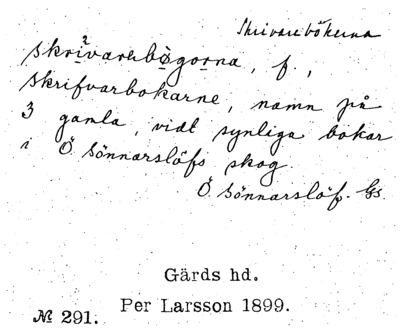 Skrivarebökerna
skrivarebøgorna, f.,
skrifvarbokarne, namn på
3 gamla, vidt synliga bokar
i Ö Sönnarslöfs skog.
Ö Sönnarslöf. Gs.
Gärds hd.
Per Larsson 1899.
№ 291.